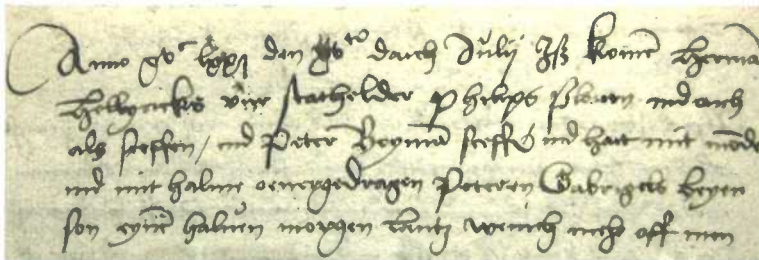 Anno xvᶜ lxxj den xvᵗᵒ daich Julij Iß komē Hermā
Hellynckß vur stathelder Philips und auch
als scheffen, ind Peter Beymā scheffē ind hait mit monde
ind mit halme oevergedragen Peteren Gabrigels Heyen
son eynē halven morgen lantz wenich meh off men